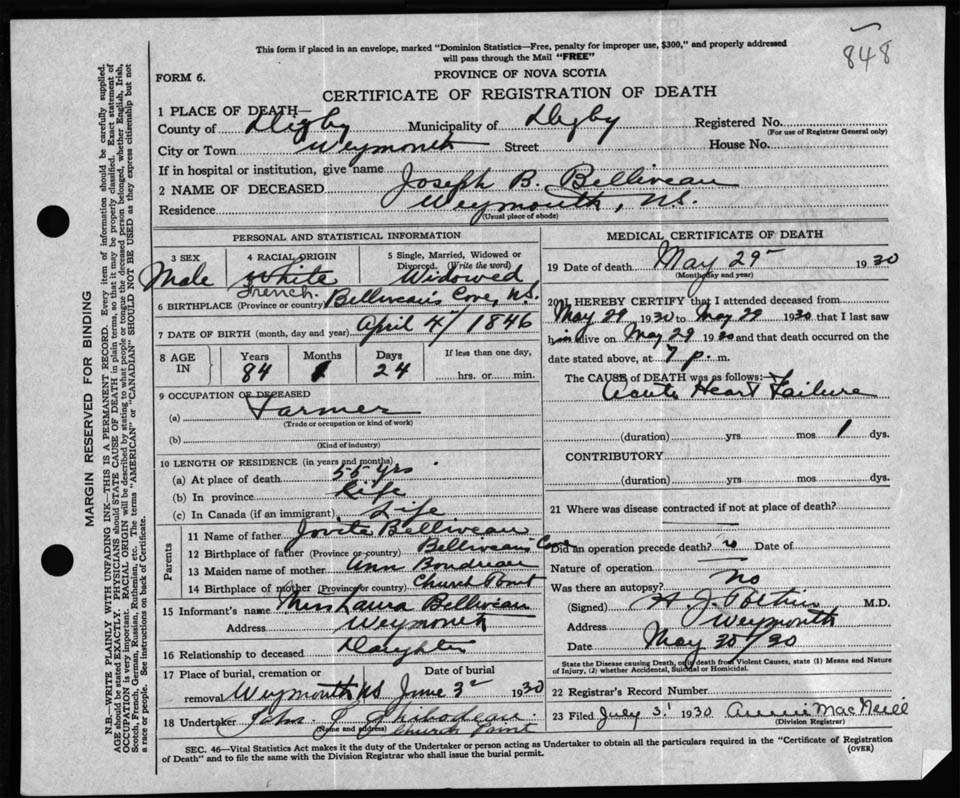 848
This form if placed in an envelope, marked "Dominion Statistics—Free, penalty for improper use, $300," and properly addressed
will pass through the Mail "FREE"
FORM 6.
PROVINCE OF NOVA SCOTIA
CERTIFICATE OF REGISTRATION OF DEATH
1 PLACE OF DEATH—
County of Digby Municipality of Digby Registered No.
(For use of Registrar General only)
City or Town Weymouth Street House No.
If in hospital or institution, give name
2 NAME OF DECEASED Joseph B. Belliveau
Residence Weymouth, N.S.
(Usual place of abode)
PERSONAL AND STATISTICAL INFORMATION
3 SEX Male
4 RACIAL ORIGIN White French.
5 Single, Married, Widowed or Divorced. (Write the word) Widowed
6 BIRTHPLACE (Province or country) Belliveau's Cove, N.S.
7 DATE OF BIRTH (month, day and year) April 4 / 1846
8 AGE IN Years 84 Months 1 Days 24
If less than one day, hrs. or min.
9 OCCUPATION OF DECEASED
(a) Farmer
(Trade or occupation or kind of work)
(b)
(Kind of industry)
10 LENGTH OF RESIDENCE (in years and months)
(a) At place of death 55 yrs.
(b) In province Life
(c) In Canada (if an immigrant) Life
Parents
11 Name of father Jovite Belliveau
12 Birthplace of father (Province or country) Belliveau's Cove
13 Maiden name of mother Ann Boudreau
14 Birthplace of mother (Province or country) Church Point
15 Informant's name Miss Laura Belliveau
Address Weymouth
16 Relationship to deceased Daughter
17 Place of burial, cremation or removal Weymouth NS
Date of burial June 3 1930
18 Undertaker John Thibodeau
(Name and address) Church Point
MEDICAL CERTIFICATE OF DEATH
19 Date of death May 29 1930
(Month, day and year)
20 I HEREBY CERTIFY that I attended deceased from
May 29 1930 to May 29 1930 that I last saw
him alive on May 29 1930 and that death occurred on the
date stated above, at 7 p. m.
The CAUSE of DEATH was as follows:—
Acute Heart Failure
(duration) yrs mos 1 dys.
CONTRIBUTORY
(duration) yrs mos dys.
21 Where was disease contracted if not at place of death?
Did an operation precede death? no Date of
Nature of operation
Was there an autopsy? No
(Signed) M.D.
Address Weymouth
Date May 30/30
State the Disease causing Death, or in death from Violent Causes, state (1) Means and Nature
of Injury, (2) whether Accidental, Suicidal or Homicidal.
22 Registrar's Record Number
23 Filed July 3 1930 Annie MacNeill
(Division Registrar)
SEC. 46—Vital Statistics Act makes it the duty of the Undertaker or person acting as Undertaker to obtain all the particulars required in the "Certificate of Registration
of Death" and to file the same with the Division Registrar who shall issue the burial permit.
(OVER)
MARGIN RESERVED FOR BINDING
N.B.—WRITE PLAINLY WITH UNFADING INK—THIS IS A PERMANENT RECORD. Every item of information should be carefully supplied.
AGE should be stated EXACTLY. PHYSICIANS should STATE CAUSE OF DEATH in plain terms, so that it may be properly classified. Exact statement of
OCCUPATION is very important. RACIAL ORIGIN will be described by stating to what people or tongue the deceased person belonged, whether English, Irish,
Scotch, French, German, Russian, Ruthenian, etc. The terms "AMERICAN" or "CANADIAN" SHOULD NOT BE USED as they express citizenship but not
a race or people. See instructions on back of Certificate.